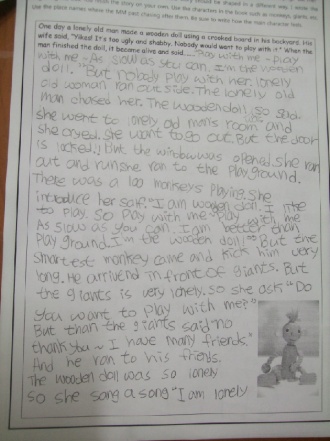 read this story on your own.
Use the place names where the kind
One day a lonely old man made a wooden doll using a crooked board in his backyard. His
wife said, "Yikes! It's too ugly and shabby. Nobody would want to play with it." When the
man finished the doll, it became alive and said, "Play with me - Play
with me - As slow as you can. I'm the wooden
doll." But nobody play with her. lonely
old woman ran out side. The lonely old
man chased her. The wooden doll so sad.
she went to lonely old man's room and
she cryed. She want to go out. But the door
is locked!! but the window was opened. she ran
out and run she ran to the Play ground.
There was a 100 monkeys playing. she
introduce her self. "I am wooden doll. I like
to play. so Play with me - Play with me
As slow as you can. I am better than
Play ground. I'm the wooden doll!" But the
smartest monkey came and kick him very
long. He arrivend in front of giants. But
the giants is very lonely. so she ask "Do
you want to play with me?"
But than the giants said no
thank you ~ I have many friends."
And he ran to his friends.
The wooden doll was so lonely
so she song a song "I am lonely